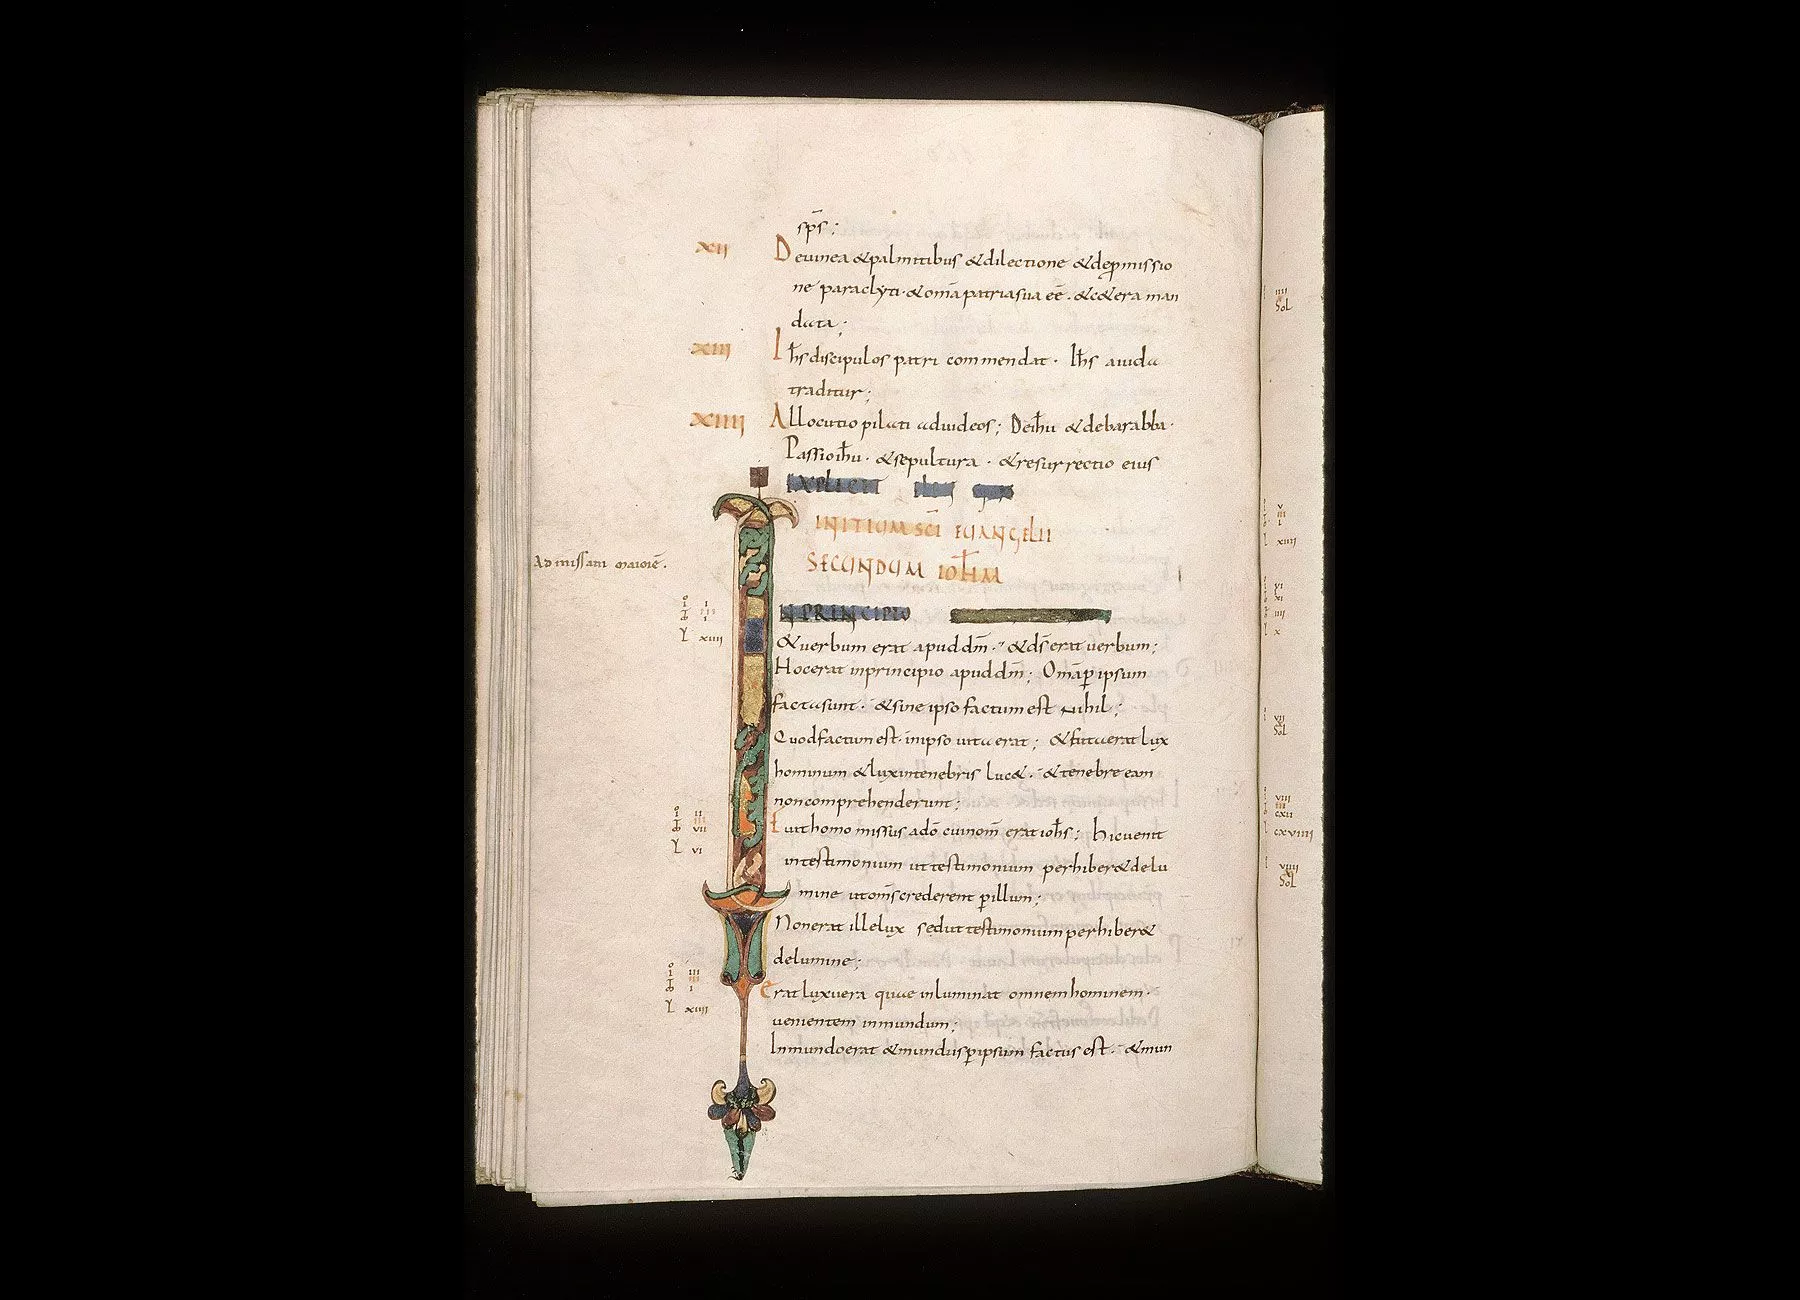 sp̄s;
xii Deuinea &palmitibus &dilectione &deꝑmissio
ne paraclyti · &om̄apatriasua eē · &c&era man
data;
xiii Ih̄s discipulos patri commendat · Ih̄s aiuda
traditur;
xiiii Allocutio pilati adiudeos; Deih̄u &debarabba ·
Passioih̄u · &sepultura · &resurrectio eius
EXPLICIT
INITIUM SC̄I EUANGELII
SECUNDUM IOH̄M
Ad missam maiorē.
IN PRINCIPIO
&uerbum erat apud dm̄ · &ds̄ erat uerbum;
Hocerat inprincipio apud dm̄; Om̄aꝑ ipsum
factasunt · &sine ipso factum est nihil;
Quodfactumest · inipso uita erat; &uita erat lux
hominum &luxintenebris luc& · &tenebre eam
noncomprehenderunt;
Fuit homo missus adō cuinom̄ erat ioh̄s; hicuenit
intestimonium ut testimonium perhiber& delu
mine utom̄s crederent ꝑ illum;
Nonerat illelux sedut testimonium perhiber&
delumine;
Erat luxuera quae inluminat omnem hominem ·
uenientem inmundum;
Inmundoerat &mundusꝑipsum factus est · &mun
iiii
Sol
v
iii
i
xuii
vi
xi
iiii
x
vii
Sol
viii
iii
cxii
cxviiii
viiii
Sol